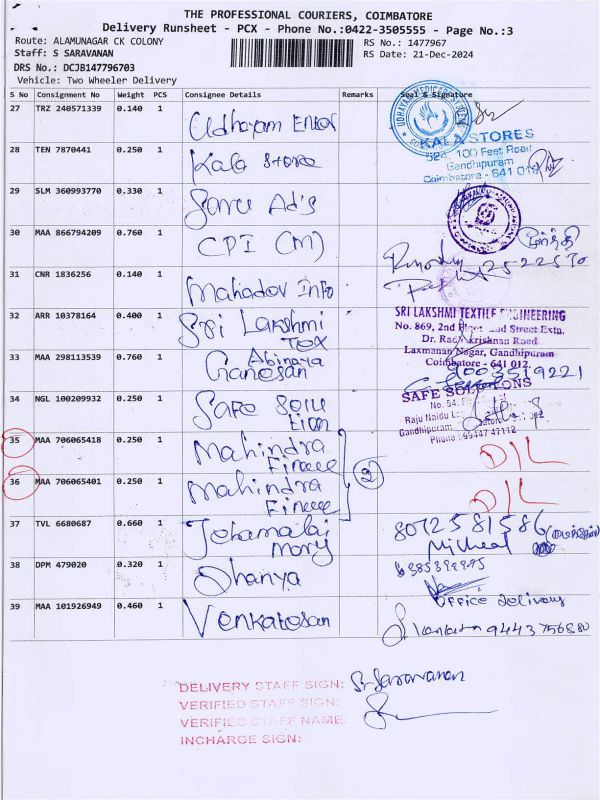 THE PROFESSIONAL COURIERS, COIMBATORE
Delivery Runsheet - PCX - Phone No.:0422-3505555 - Page No.:3
Route: ALAMUNAGAR CK COLONY
RS No.: 1477967
Staff: S SARAVANAN
RS Date: 21-Dec-2024
DRS No.: DCJB147796703
Vehicle: Two Wheeler Delivery
S No Consignment No Weight PCS Consignee Details Remarks Seal & Signature
27 TRZ 240571339 0.140 1 Udhayam
28 TEN 7870441 0.250 1 Kala Store
KALA STORES
524, 100 Feet Road
Gandhipuram
Coimbatore - 641 012
29 SLM 360993770 0.330 1 Saru Ad's
30 MAA 866794209 0.760 1 CPI (M)
31 CNR 1836256 0.140 1 Mahadev Info
32 ARR 10378164 0.400 1 Sri Lakshmi Tex
SRI LAKSHMI TEXTILE ENGINEERING
No. 869, 2nd Floor, 2nd Street Extn,
Dr. Radhakrishnan Road
Laxmanan Nagar, Gandhipuram
Coimbatore - 641 012.
33 MAA 298113539 0.760 1 Abinaya Ganesan
9003519221
34 NGL 100209932 0.250 1 Safe Solu tion
SAFE SOLUTIONS
No. 54,
Raju Naidu
Gandhipuram
Phone : 99447 47112
35 MAA 706065418 0.250 1 Mahindra Finace D/L
36 MAA 706065401 0.250 1 Mahindra Finace D/L
2
37 TVL 6680687 0.660 1 Jebamalai mary 8072581586
Micheal
38 DPM 479020 0.320 1 Dhanya
Office delivery
39 MAA 101926949 0.460 1 Venkatesan 9443756880
DELIVERY STAFF SIGN: S. Saravanan
VERIFIED STAFF SIGN:
VERIFIED STAFF NAME:
INCHARGE SIGN: